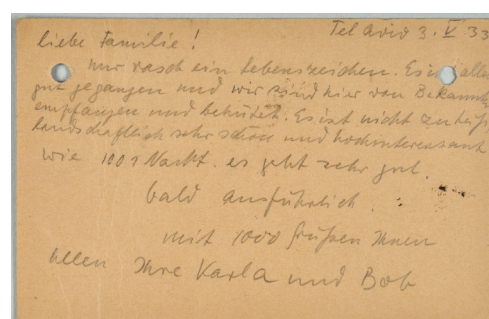 Tel Aviv 3. V 33
liebe Familie!
Nur rasch ein Lebenszeichen. Es ist alles
gut gegangen und wir sind hier von Bekannten
empfangen und behütet. Es ist nicht zu heiß,
landschaftlich sehr schön und hochinteressant
wie 1001 Nacht. es geht sehr gut.
bald ausführlich.
mit 1000 Grüßen Ihnen
allen Ihre Karla und Bob